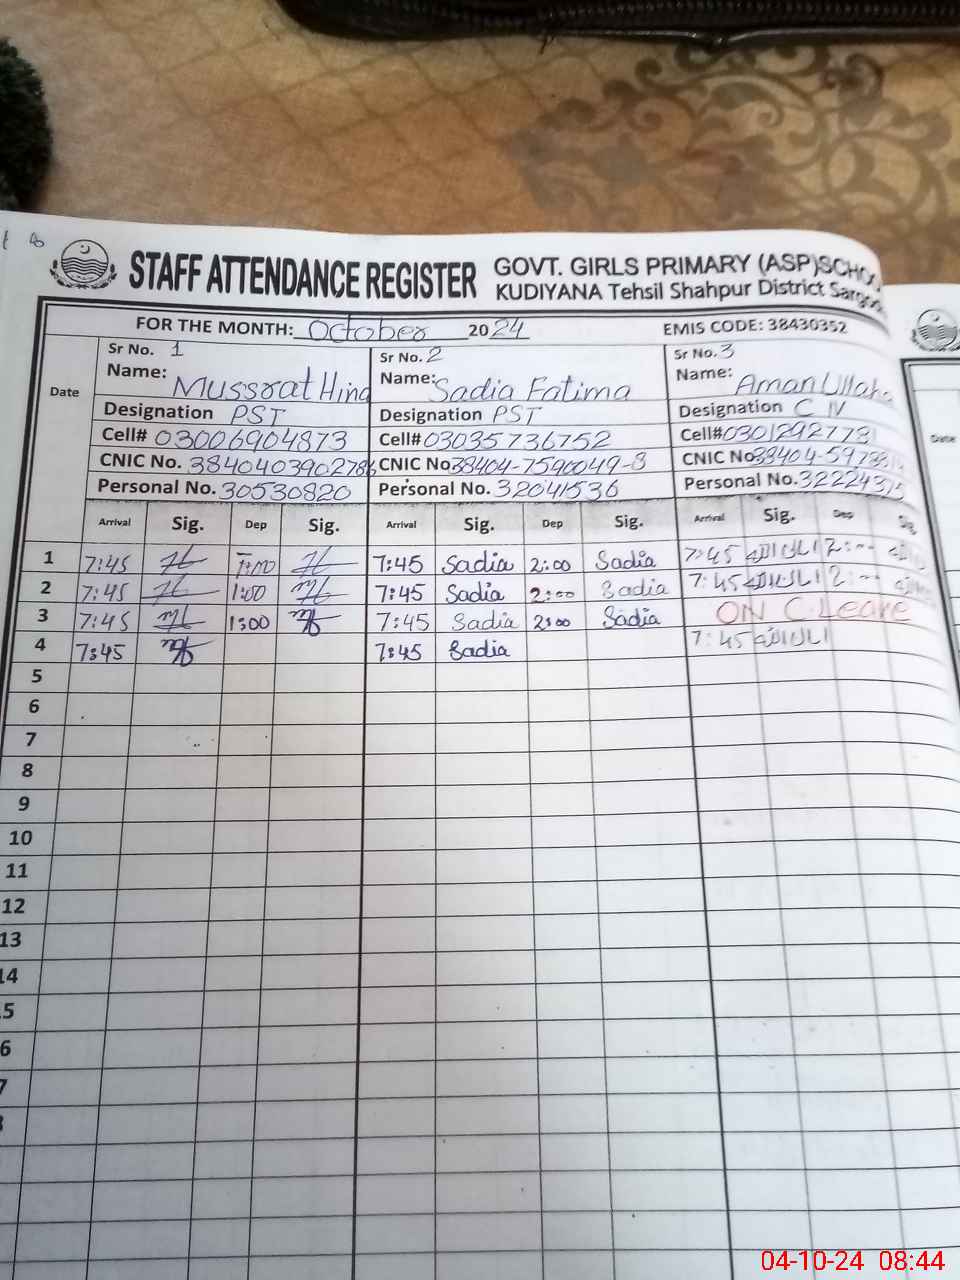 STAFF ATTENDANCE REGISTER
GOVT. GIRLS PRIMARY (ASP)SCHOO
KUDIYANA Tehsil Shahpur District Sargod
FOR THE MONTH: October 2024 EMIS CODE: 38430352
Date
Sr No. 1 Sr No. 2 Sr No. 3
Name: Mussrat Hina Name: Sadia Fatima Name: Aman Ullah
Designation PST Designation PST Designation C IV
Cell# 03006904873 Cell# 03035736752 Cell#
CNIC No. 3840403902786 CNIC No 38404-7590049-8 CNIC No
Personal No. 30530820 Personal No. 32041536 Personal No. 32224375
Date
Arrival Sig. Dep Sig. Arrival Sig. Dep Sig. Arrival Sig. Dep Sig.
1 7:45 1:00 7:45 Sadia 2:00 Sadia 7:45 امان اللہ 2:00 امان اللہ
2 7:45 1:00 7:45 Sadia 2:00 Sadia 7:45 امان اللہ 2:00 امان اللہ
3 7:45 1:00 7:45 Sadia 2:00 Sadia ON C.Leave
4 7:45 7:45 Sadia 7:45 امان اللہ
5
6
7
8
9
10
11
12
13
14
5
6
7
04-10-24 08:44